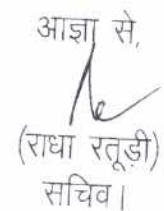 आज्ञा से,
(राधा रतूड़ी)
सचिव।